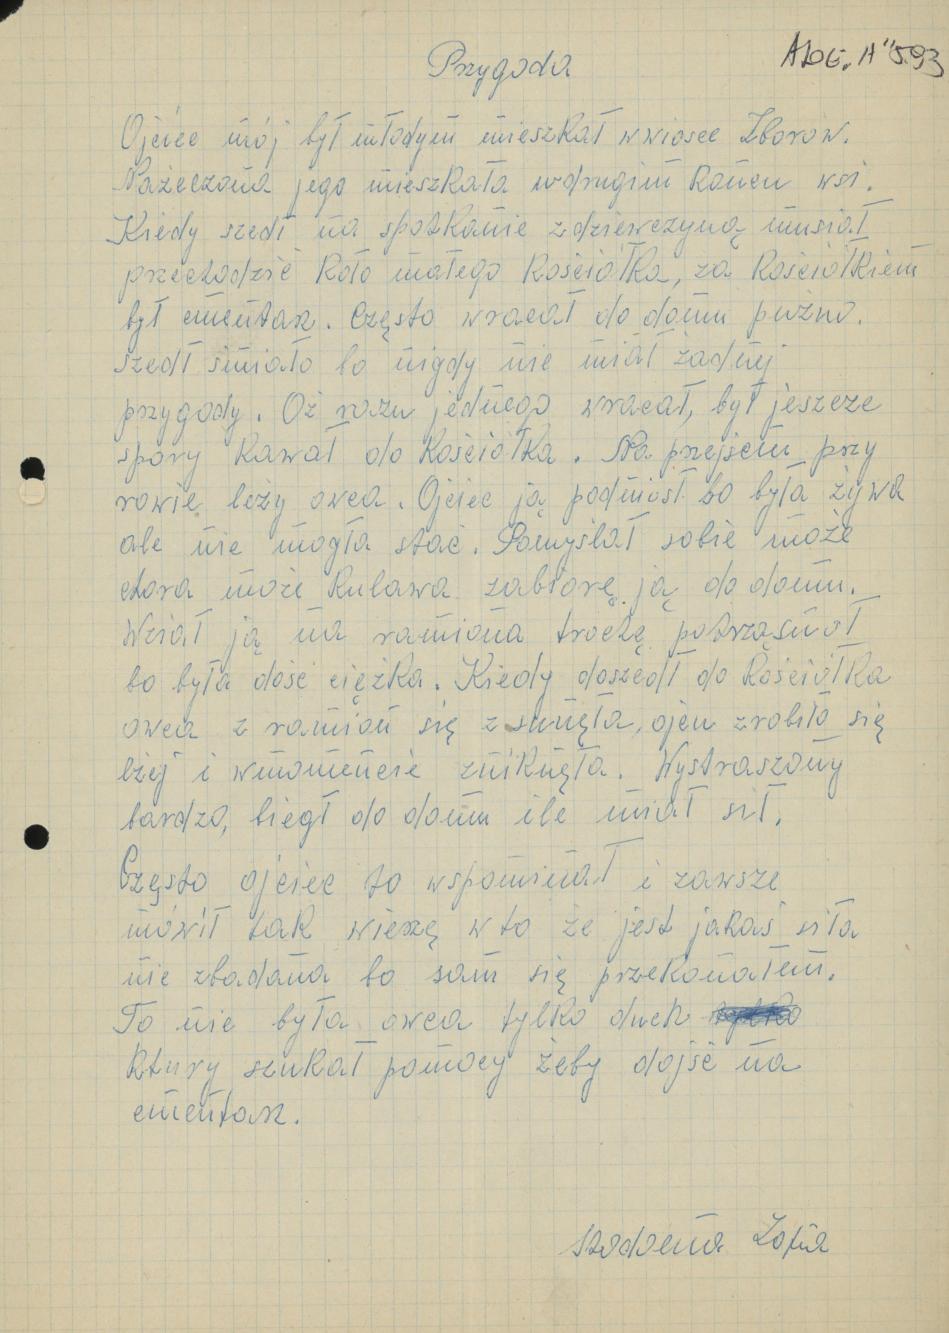 Przygoda
Ojciec mój był młodym mieszkał wwiosce Zborow.
Nażeczona jego mieszkała wdrugim końcu wsi.
Kiedy szedł na spotkanie zdziewczyną musiał
przechodzić koło małego kościołka, za kościółkiem
był cmentarz. Często wracał do domu puźno.
szedł śmiało bo nigdy nie miał żadnej
przygody. Oż razu jednego wracał, był jeszcze
spory kawał do kościołka. Na przejściu przy
rowie leży owca. Ojciec ją podniósł bo była żywa
ale nie mogła stać. Pomyślał sobie może
chora może kulawa zabiorę ją do domu.
Wział ją na ramiona trochę potrząsnoł
bo była dość ciężka. Kiedy doszedł do kościółka
owca z ramion się zsunęła, ojcu zrobiło się
lżej i wmomencie zniknęła. Wystraszony
bardzo, biegł do domu ile miał sił.
Często ojciec to wspominał i zawsze
mówił tak wierzę w to że jest jakaś siła
nie zbadana bo sam się przekonałem.
To nie była owca tylko duch
ktury szukał pomocy żeby dojść na
cmentarz.
Zofia